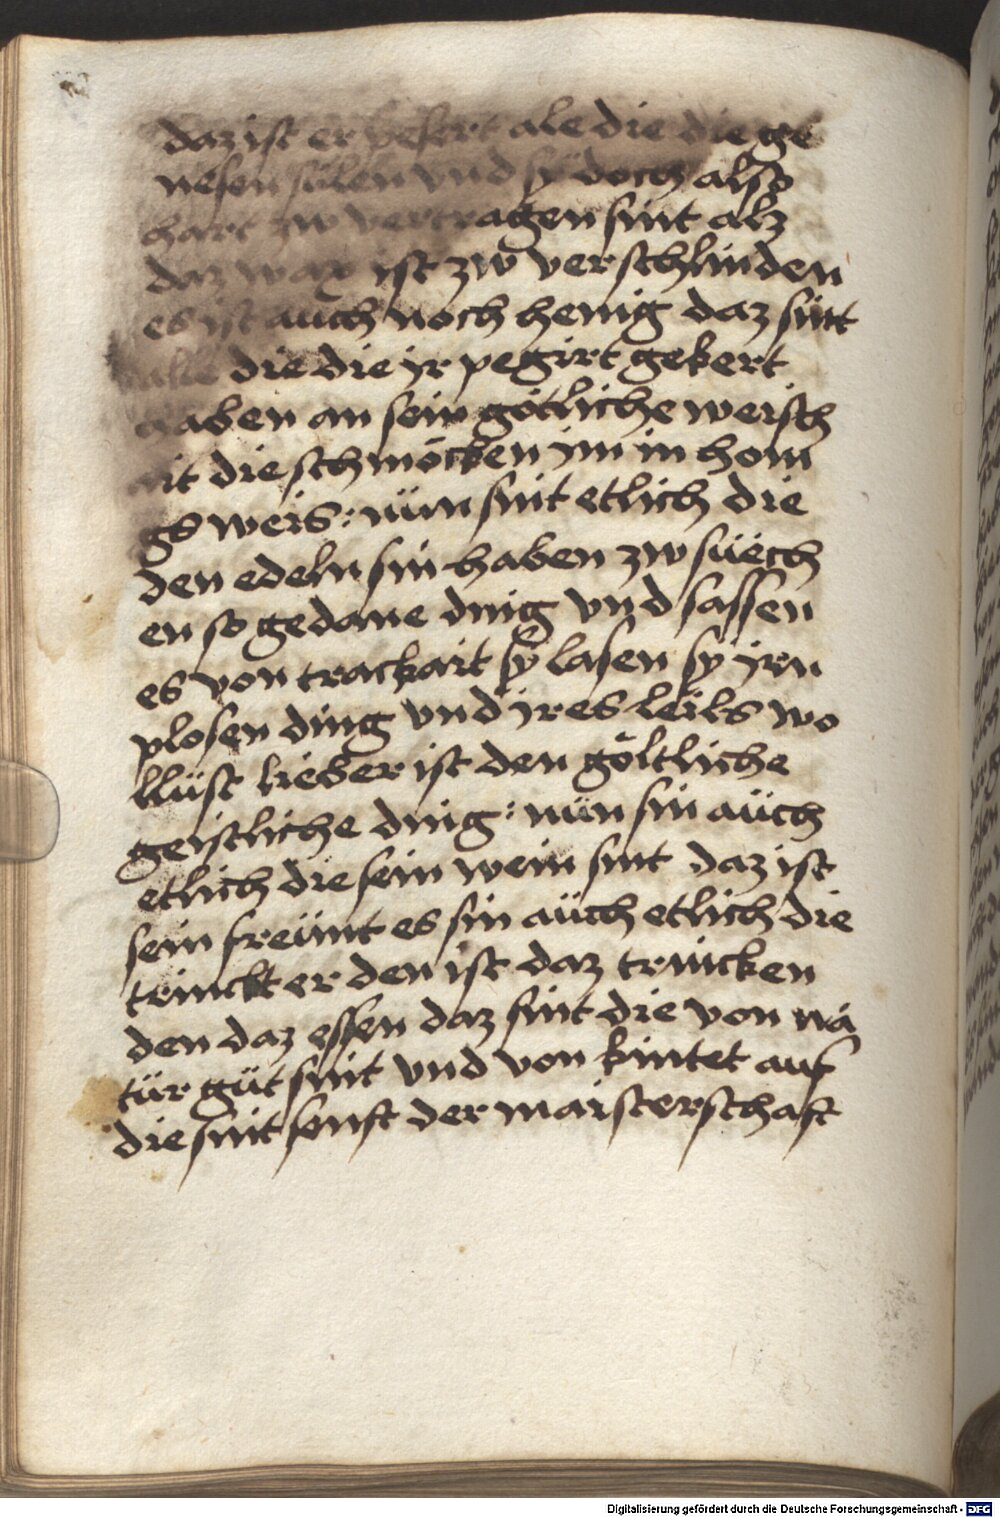 daz ist er pekert ale die die ge
nesen sülen vnd sy doch also
hart zw vertragen sint alz
daz wax ist zw verschlinden
es ist auch noch henig daz sint
alle die die ir pegirt gekert
haben an sein götliche weisch
ait die schmöcken im in hom
gs weis: nün sint etlich die
den edeln sin haben zw süech
en so gedane ding vnd lassen
es von trackait sy lasen sy irn
plosen ding vnd ires leibs wo
llüst lieber ist den göttliche
geistliche ding: nün sin aüch
etlich die sein wein sint daz ist
sein freünt es sin aüch etlich die
trinckt er den ist daz trincken
den daz essen daz sint die von na
tür güt sint vnd von kintet auf
die sint senft der maisterschaft
Digitalisierung gefördert durch die Deutsche Forschungsgemeinschaft - DFG